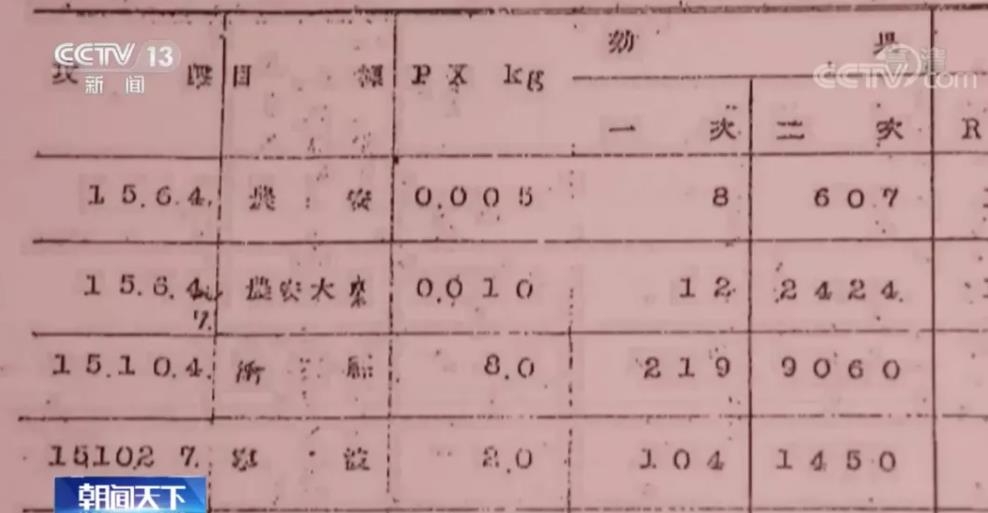 CCTV 13
新闻
効 果
高清
CCTV.com
目 標 P X kg
一 次 二 次 R
15.6.4. 農 安 0.005 8 607
15.6.4. 農安大 0.010 12 2424
7.
15.10.4. 8.0 219 9060
151027. 波 2.0 104 1450
朝闻天下